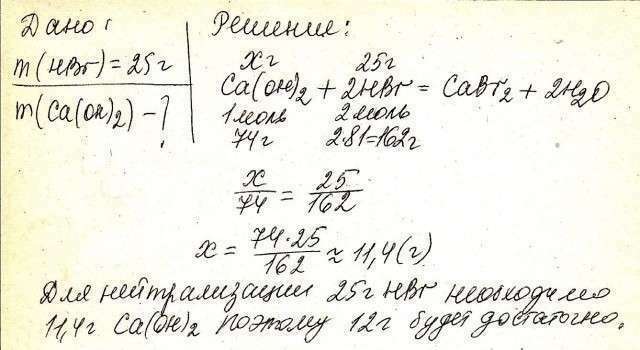 Дано:
m(HBr) = 25г
m(Ca(OH)2) - ?
Решение:
xг 25г
Ca(OH)2 + 2HBr = CaBr2 + 2H2O
1моль 2моль
74г 2·81=162г
x/74 = 25/162
x = 74·25/162 ≈ 11,4(г)
Для нейтрализации 25г HBr необходимо
11,4г Ca(OH)2 поэтому 12г будет достаточно.